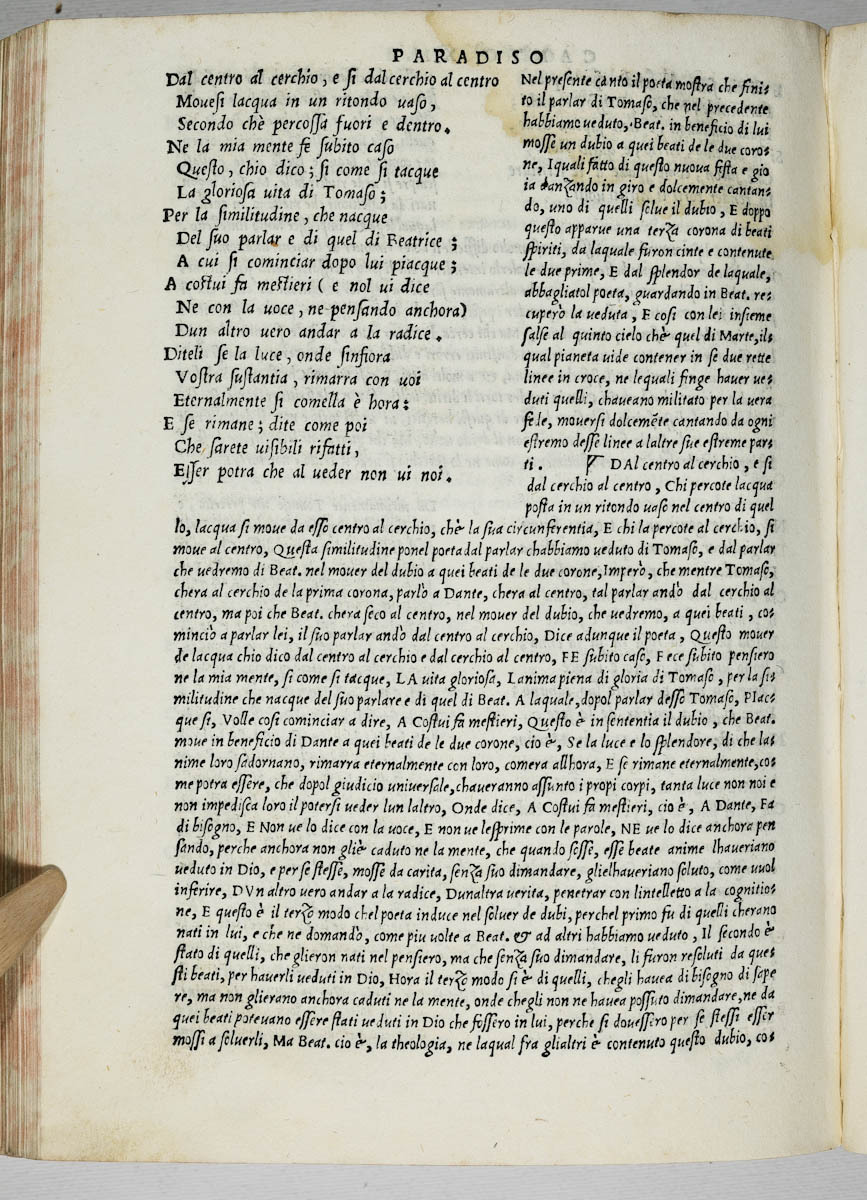 PARADISO
Dal centro al cerchio, e si dal cerchio al centro
Movesi lacqua in un ritondo uaso,
Secondo chè percossa fuori e dentro.
Ne la mia mente fe subito caso
Questo, chio dico; si come si tacque
La gloriosa uita di Tomaso;
Per la similitudine, che nacque
Del suo parlar e di quel di Beatrice;
A cui si cominciar dopo lui piacque;
A costui fa mestieri (e nol ui dice
Ne con la uoce, ne pensando anchora)
Dun altro uero andar a la radice.
Diteli se la luce, onde sinfiora
Vostra sustantia, rimarra con uoi
Eternalmente si comella è hora:
E se rimane; dite come poi
Che sarete uisibili rifatti,
Esser potra che al ueder non ui noi.
Nel presente canto il poeta mostra che fini-
to il parlar di Tomaso, che nel precedente
habbiamo ueduto, Beat. in beneficio di lui
mosse un dubio a quei beati de le due coro-
ne, Iquali fatto di questo nuoua festa e gio
ia danzando in giro e dolcemente cantan-
do, uno di quelli solue il dubio, E doppo
questo apparue una terza corona di beati
spiriti, da laquale furon cinte e contenute
le due prime, E dal splendor de laquale,
abbagliatol poeta, guardando in Beat. re-
cuperò la ueduta, E cosi con lei insieme
salse al quinto cielo chè quel di Marte, il-
qual pianeta uide contener in se due rette
linee in croce, ne lequali finge hauer ue-
duti quelli, chaueano militato per la uera
fede, mouersi dolcemẽte cantando da ogni
estremo desse linee a laltre sue estreme par-
ti. DAl centro al cerchio, e si
dal cerchio al centro, Chi percote lacqua
posta in un ritondo uaso nel centro di quel
lo, lacqua si moue da esso centro al cerchio, chè la sua circunferentia, E chi la percote al cerchio, si
moue al centro, Questa similitudine ponel poeta dal parlar chabbiamo ueduto di Tomaso, e dal parlar
che uedremo di Beat. nel mouer del dubio a quei beati de le due corone, Imperò, che mentre Tomaso,
chera al cerchio de la prima corona, parlò a Dante, chera al centro, tal parlar andò dal cerchio al
centro, ma poi che Beat. chera seco al centro, nel mouer del dubio, che uedremo, a quei beati, co-
minciò a parlar lei, il suo parlar andò dal centro al cerchio, Dice adunque il poeta, Questo mouer
de lacqua chio dico dal centro al cerchio e dal cerchio al centro, FE subito caso, Fece subito pensiero
ne la mia mente, si come si tacque, LA uita gloriosa, Lanima piena di gloria di Tomaso, per la si-
militudine che nacque del suo parlare e di quel di Beat. A laquale, dopol parlar desso Tomaso, PIac-
que si, Volle cosi cominciar a dire, A COstui fa mestieri, Questo è in sententia il dubio, che Beat.
moue in beneficio di Dante a quei beati de le due corone, cio è, Se la luce e lo splendore, di che la-
nime loro sadornano, rimarra eternalmente con loro, comera allhora, E se rimane eternalmente, co-
me potra essere, che dopol giudicio uniuersale, chaueranno assunto i propi corpi, tanta luce non noi e
non impedisca loro il potersi ueder lun laltro, Onde dice, A COstui fa mestieri, cio è, A Dante, FA
di bisogno, E NOn ue lo dice con la uoce, E non ue lesprime con le parole, NE ue lo dice anchora pen
sando, perche anchora non gliè caduto ne la mente, che quando fosse, esse beate anime lhaueriano
ueduto in Dio, e per se stesse, mosse da carita, senza suo dimandare, glielhaueriano soluto, come uuol
inferire, DVn altro uero andar a la radice, Dunaltra uerita, penetrar con lintelletto a la cognitio-
ne, E questo è il terzo modo chel poeta induce nel soluer de dubi, perchel primo fu di quelli cherano
nati in lui, e che ne domandò, come piu uolte a Beat. & ad altri habbiamo ueduto, Il secondo è
stato di quelli, che glieron nati nel pensiero, ma che senza suo dimandare, li furon resoluti da que-
sti beati, per hauerli ueduti in Dio, Hora il terzo modo si è di quelli, chegli hauea di bisogno di sape
re, ma non glierano anchora caduti ne la mente, onde chegli non ne hauea possuto dimandare, ne da
quei beati poteuano essere stati ueduti in Dio che fossero in lui, perche si douessero per se stessi esser
mossi a soluerli, Ma Beat. cio è, la theologia, ne laqual fra glialtri è contenuto questo dubio, co-